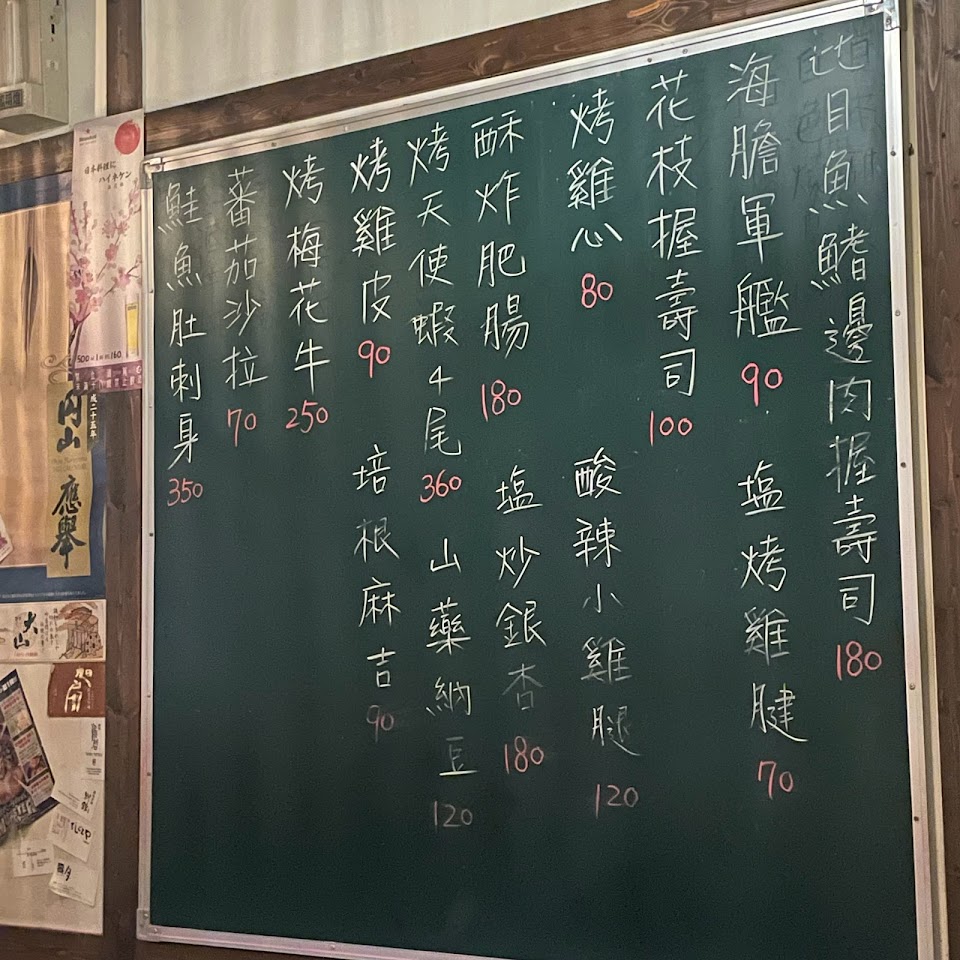 比目魚鰭邊肉握壽司
180
海膽軍艦
90
塩烤雞腱
70
花枝握壽司
100
烤雞心
80
酸辣小雞腿
120
酥炸肥腸
180
塩炒銀杏
180
烤天使蝦4尾
360
山藥納豆
120
烤雞皮
90
培根麻吉
90
烤梅花牛
250
蕃茄沙拉
70
鮭魚肚刺身
350
日本料理に
ハイネケン
円山
應舉
成二十五年
大山